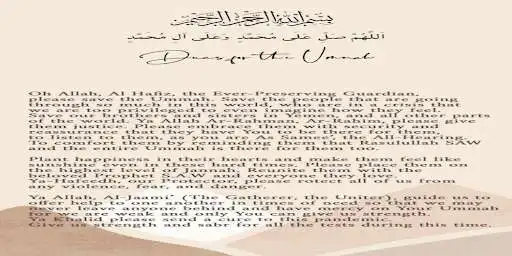 بسم الله الرحمن الرحيم
اللَّهُمَّ صَلِّ عَلَى مُحَمَّدٍ وَعَلَى آلِ مُحَمَّدٍ
Duas for the Ummah
Oh Allah, Al Hafiz, the Ever-Preserving Guardian,
please save the Ummah. Save the people that are going
through so much in this world, who are in a crisis that
we are too privileged to even imagine how they feel.
Save our brothers and sisters in Yemen, and all other parts
of the world. Ya Allah Ar-Rahman, Ar-Rahim, please give
them justice. Please embrace them with love and
reassurance that they have You to be there for them,
to listen to them, as you are As Samee', the All-Hearing.
To comfort them by reminding them that Rasulullah SAW
and the entire Ummah is there for them too.
Plant happiness in ther hearts and make them feel like
sunshine even in these hard times. Please place them on
the highest level of Jannah. Reunite them with the
beloved Prophet S.A.W and everyone they love.
Ya-Hafeed, The Protector. Please rotect all of us from
any violence, fear, and danger.
Ya Allah, Al-Jaami', (The Gatherer, the Uniter), guide us to
offer help to one another in times of need so that we may
never leave anyone behind and have mercy on Your Ummah
for we are weak and only You can give us strength.
Ya Khalid please send a cure to this pandemic.
Give us strength and sabr for all the tests during this time.